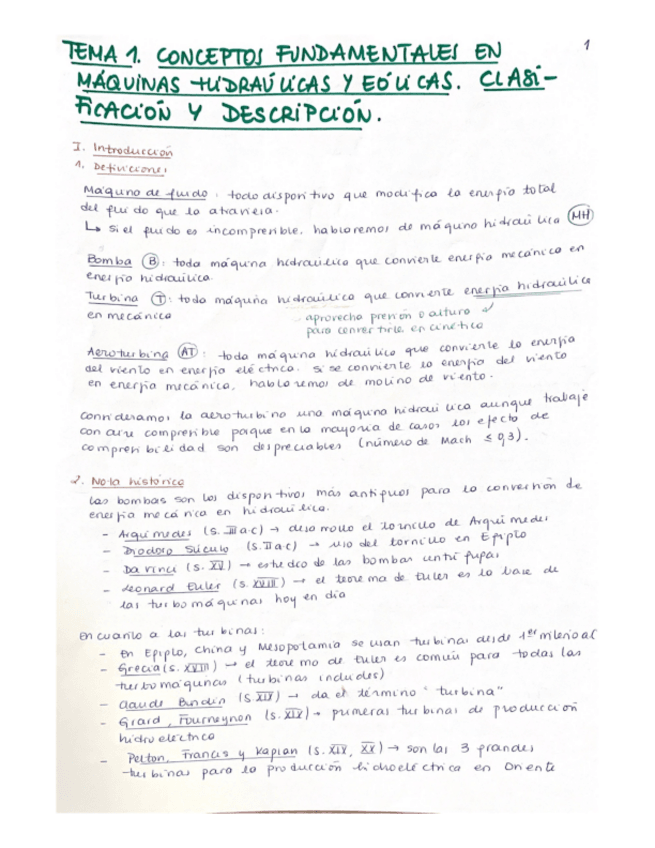 1
TEMA 1. CONCEPTOS FUNDAMENTALES EN
MÁQUINAS HIDRAÚLICAS Y EÓLICAS. CLASI-
FICACIÓN Y DESCRIPCIÓN.
I. Introducción
1. Definiciones
Máquina de fluido: todo dispositivo que modifica la energía total
del fluido que la atraviesa.
↳ Si el fluido es incompresible, hablaremos de máquina hidraúlica (MH)
Bomba (B): toda máquina hidraúlica que convierte energía mecánica en
energía hidraúlica.
Turbina (T): toda máquina hidraúlica que convierte energía hidraúlica
en mecánica
aprovecha presión o altura
para convertirla en cinética
Aeroturbina (AT): toda máquina hidraúlica que convierte la energía
del viento en energía eléctrica. Si se convierte la energía del viento
en energía mecánica, hablaremos de molino de viento.
Consideramos la aeroturbina una máquina hidraúlica aunque trabaje
con aire compresible porque en la mayoría de casos los efecto de
compresibilidad son despreciables (número de Mach ≤ 0,3).
2. Nota histórica
Las bombas son los dispositivos más antiguos para la conversión de
energía mecánica en hidraúlica.
- Arquímedes (S. III a.C) → desarrollo el tornillo de Arquímedes
- Diodoro Sículo (S. II a.C) → uso del tornillo en Egipto
- Da Vinci (S. XV) → estudio de las bombas centrífugas
- Leonard Euler (S. XVIII) → el teorema de Euler es la base de
las turbomáquinas hoy en día
En cuanto a las turbinas:
- En Egipto, China y Mesopotamia se usan turbinas desde 1er milenio aC
- Grecia (S. XVIII) → el teorema de Euler es común para todas las
turbomáquinas (turbinas incluidas)
- Claude Burdin (S. XIX) → da el término "turbina"
- Girard, Fourneynon (S. XIX) → primeras turbinas de producción
hidroeléctrica
- Pelton, Francis y Kaplan (S. XIX, XX) → son las 3 grandes
turbinas para la producción hidroeléctrica en Oriente